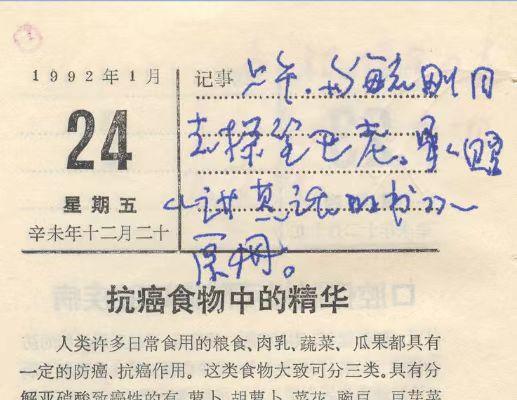 1992年1月
24
星期五
辛未年十二月二十
记事
上午、与毓刚同
去探望巴老。
讲真话的书
抗癌食物中的精华
人类许多日常食用的粮食、肉乳、蔬菜、瓜果都具有
一定的防癌、抗癌作用。这类食物大致可分三类。具有分
解亚硝酸致癌性的有 萝卜、胡萝卜、菜花、豌豆、豆芽菜